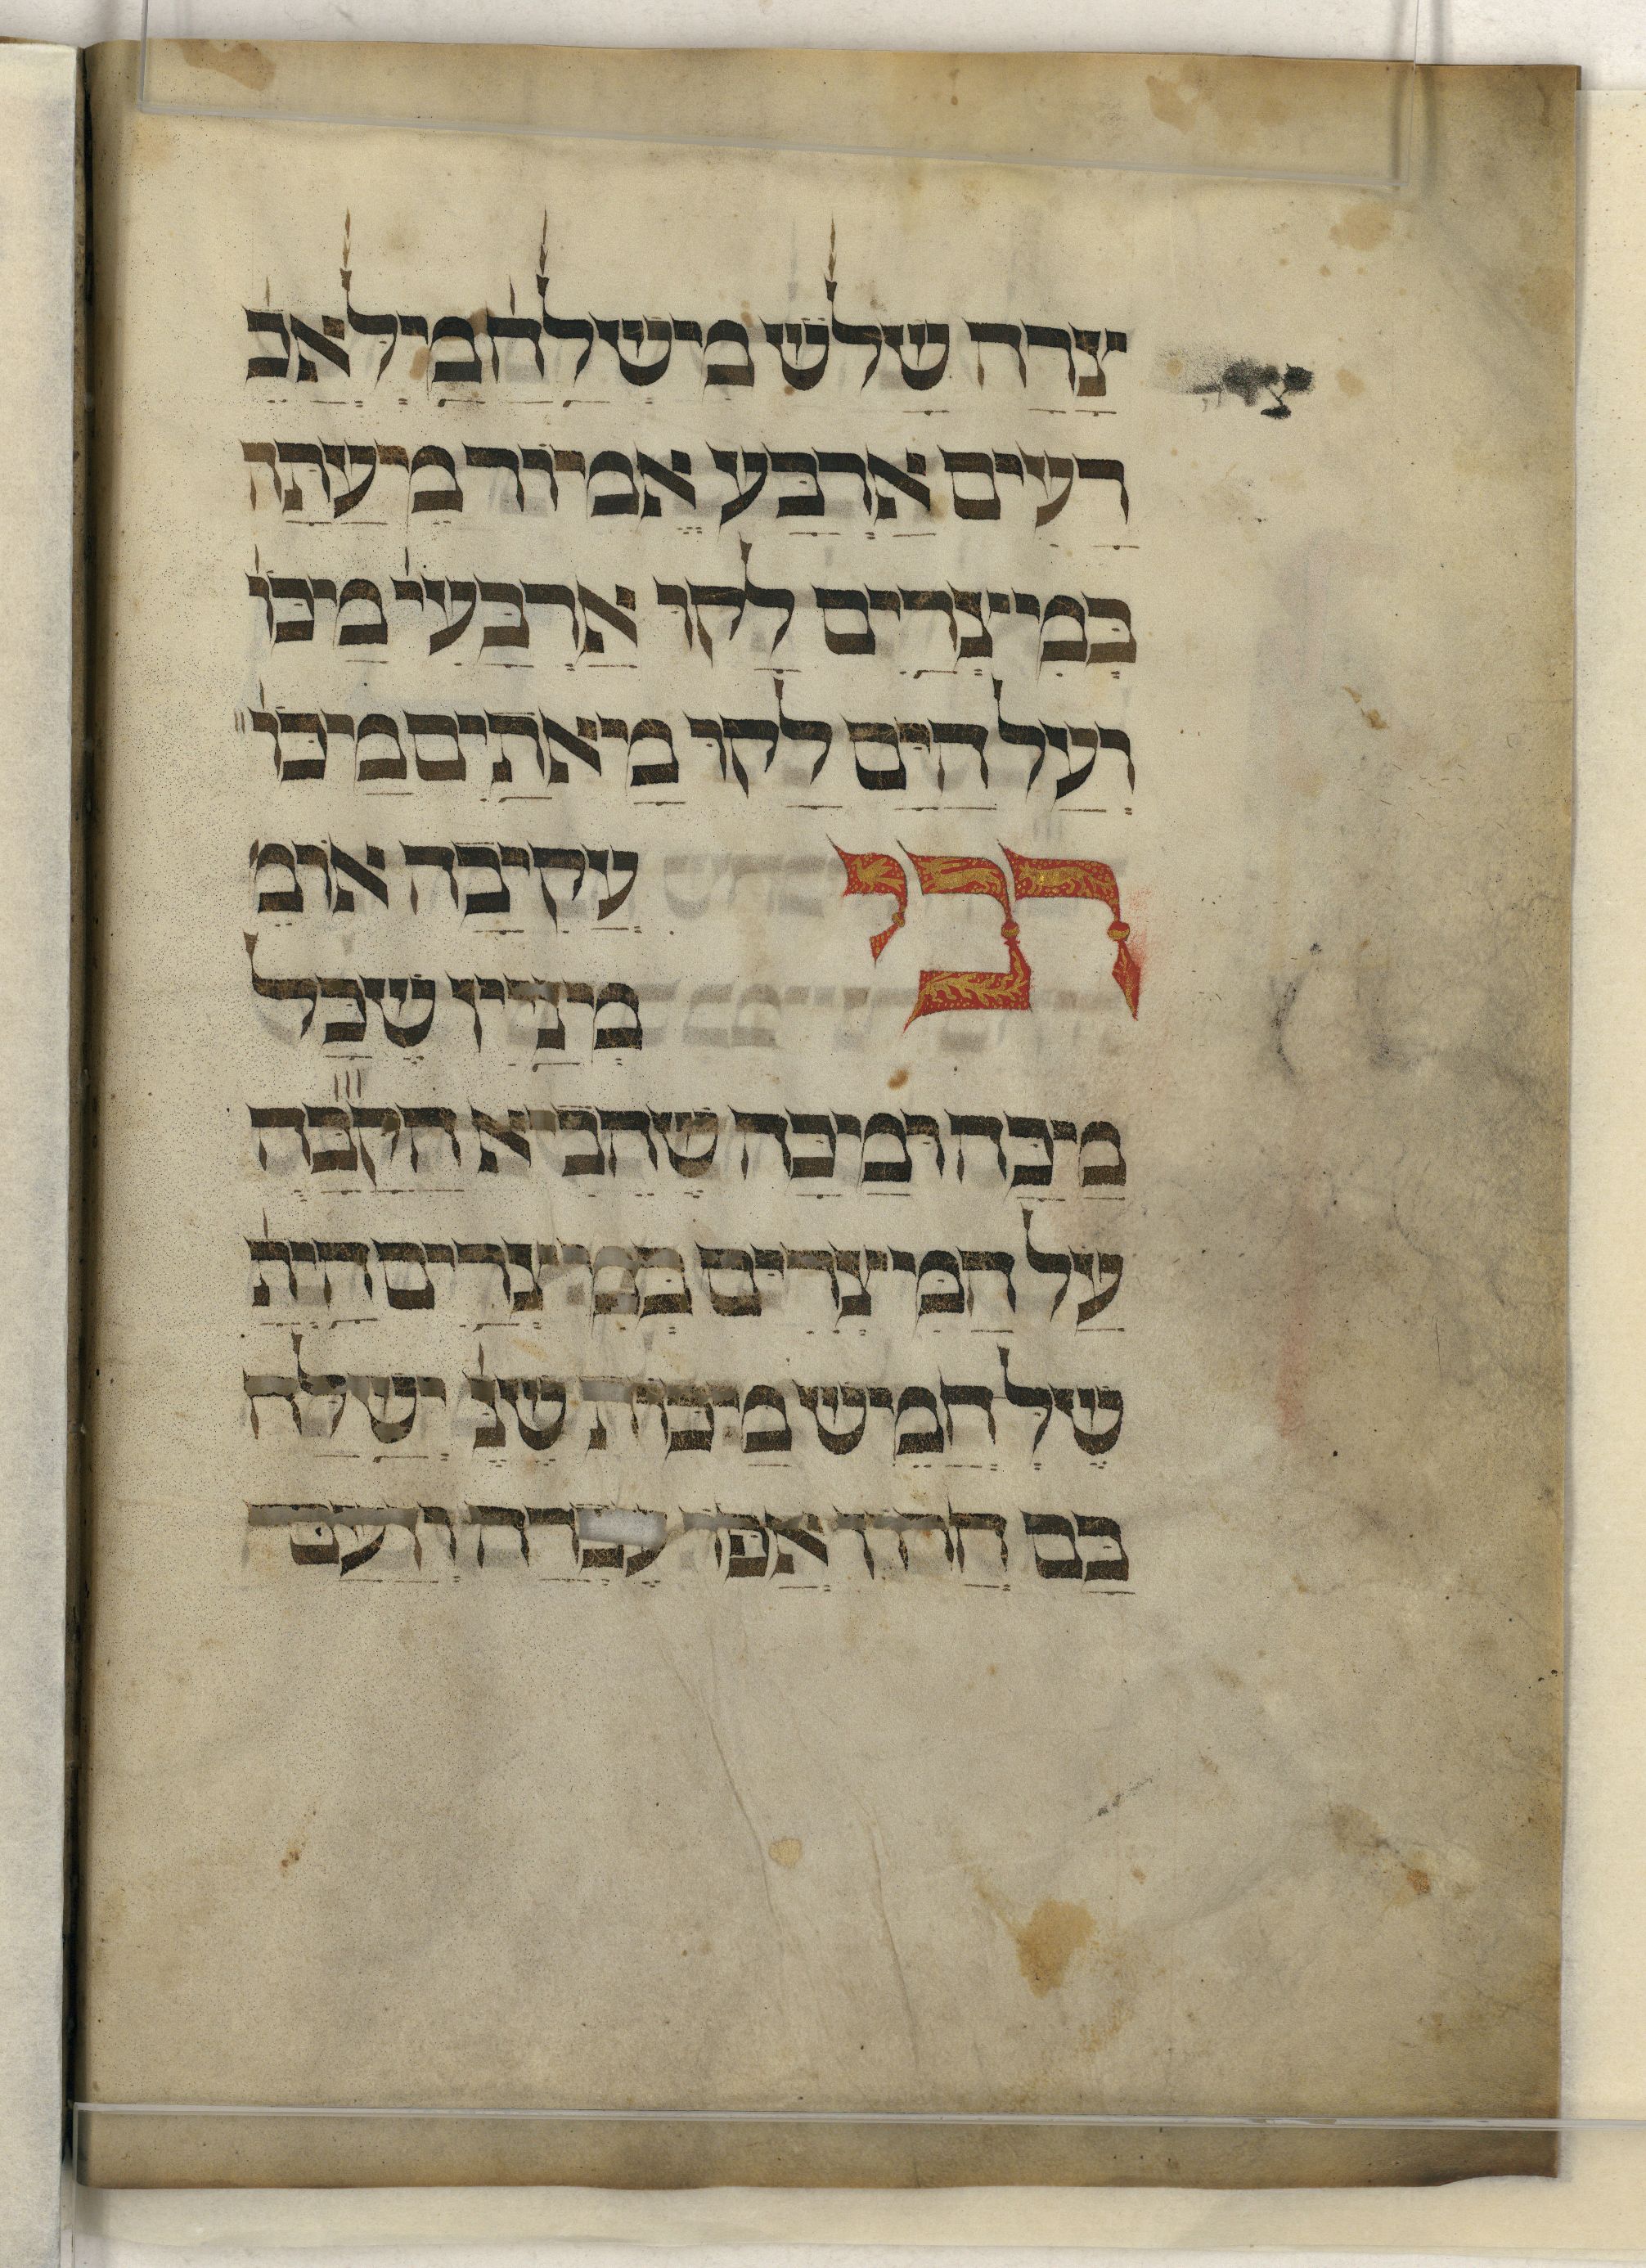 צרה שלש משלח׳ מלאכ׳
רעים ארבע אמור מעתה
במצרים לקו ארבעי׳ מכו׳
ועל הים לקו מאתים מכו׳
רבי עקיבה אומ׳
מניין שכל
מכה ומכה שהביא הקבה
על המצרים במצרים הית׳
של חמש מכות שנ׳ ישלח
בם חרון אפו עברה וזעם